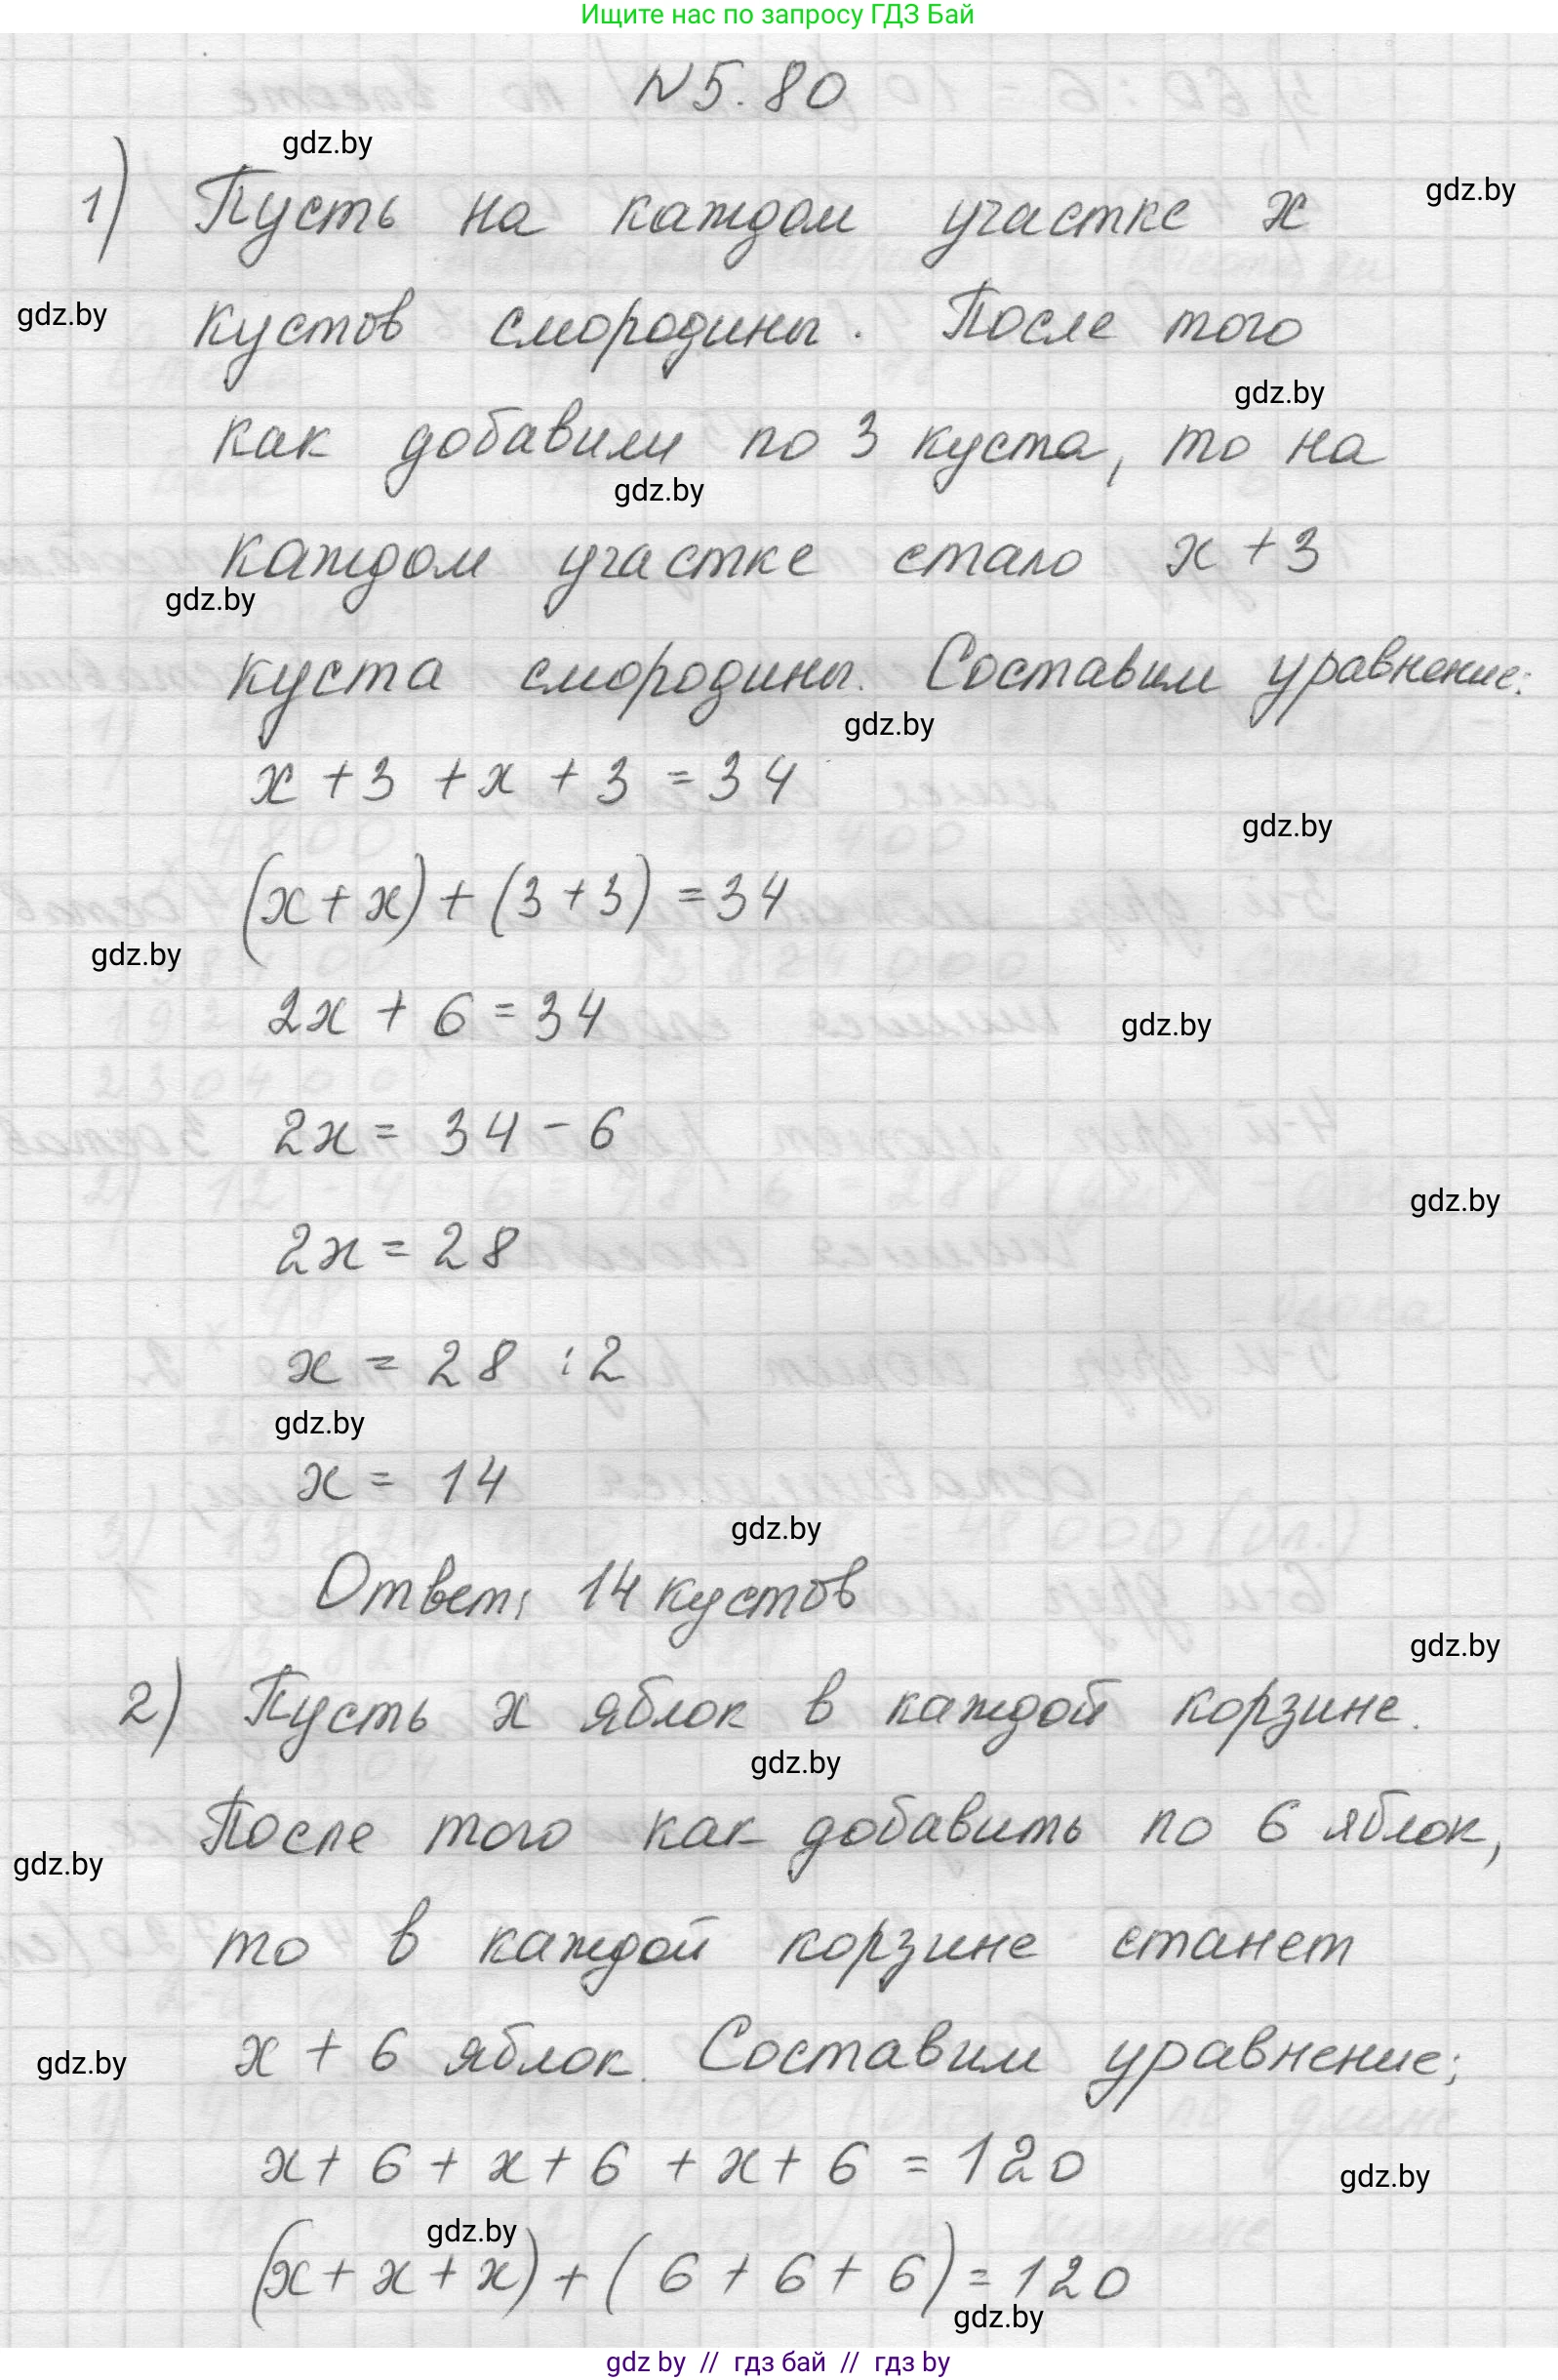 Ищите нас по запросу ГДЗ Бай
N5.80
gdz.by
1) Пусть на каждом участке x
gdz.by
gdz.by
кустов смородины. После того
gdz.by
как добавили по 3 куста, то на
gdz.by
каждом участке стало x + 3
gdz.by
куста смородины. Составим уравнение:
gdz.by
x + 3 + x + 3 = 34
gdz.by
(x + x) + (3 + 3) = 34
gdz.by
2x + 6 = 34
gdz.by
2x = 34 - 6
gdz.by
2x = 28
x = 28 : 2
gdz.by
x = 14
gdz.by
Ответ: 14 кустов
gdz.by
2) Пусть x яблок в каждой корзине.
gdz.by
После того как добавить по 6 яблок,
gdz.by
то в каждой корзине станет
x + 6 яблок. Составим уравнение:
gdz.by
x + 6 + x + 6 + x + 6 = 120
gdz.by
gdz.by
(x + x + x) + (6 + 6 + 6) = 120
gdz.by
gdz by // гдз бай // гдз by